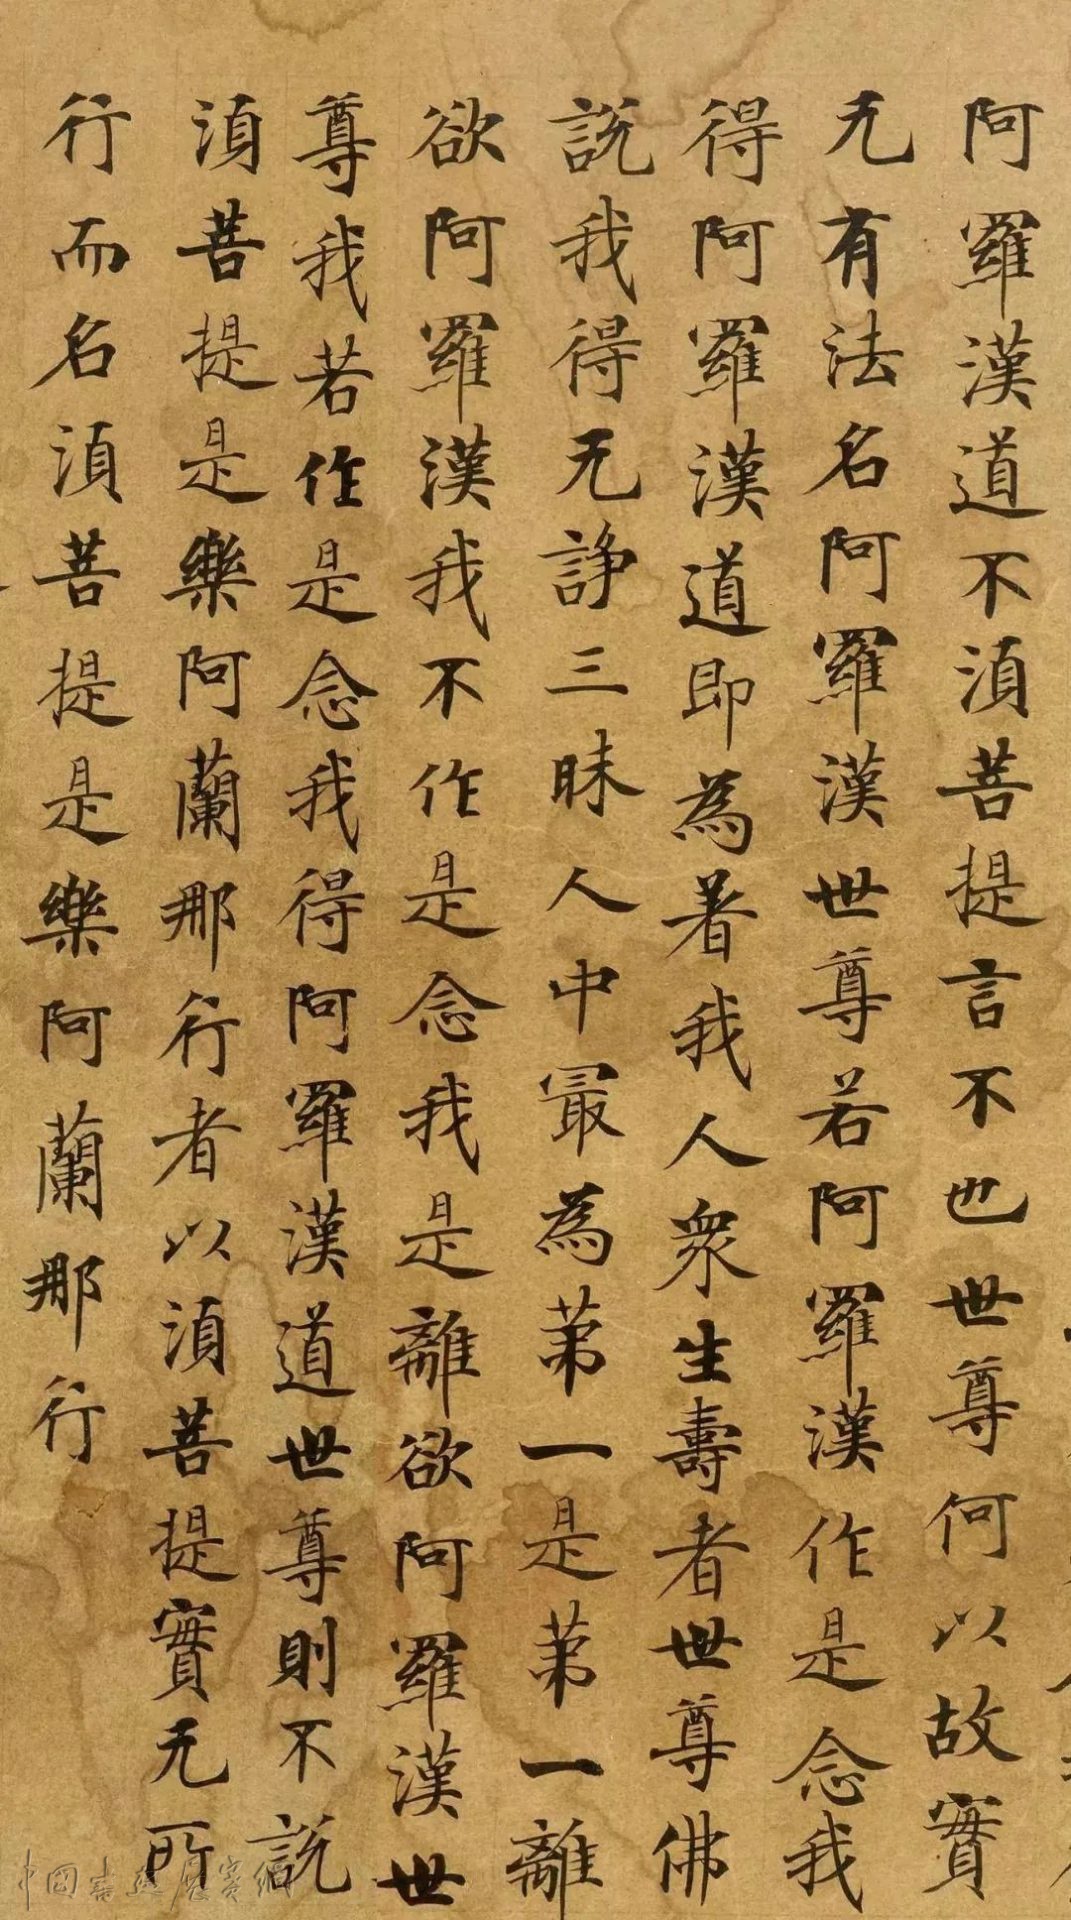 阿羅漢道不湏菩提言不也世尊何以故實
无有法名阿羅漢世尊若阿羅漢作是念我
得阿羅漢道即為著我人衆生壽者世尊佛
說我得无諍三昧人中冣為苐一是苐一離
欲阿羅漢我不作是念我是離欲阿羅漢世
尊我若作是念我得阿羅漢道世尊則不說
湏菩提是樂阿蘭那行者以湏菩提實无所
行而名湏菩提是樂阿蘭那行